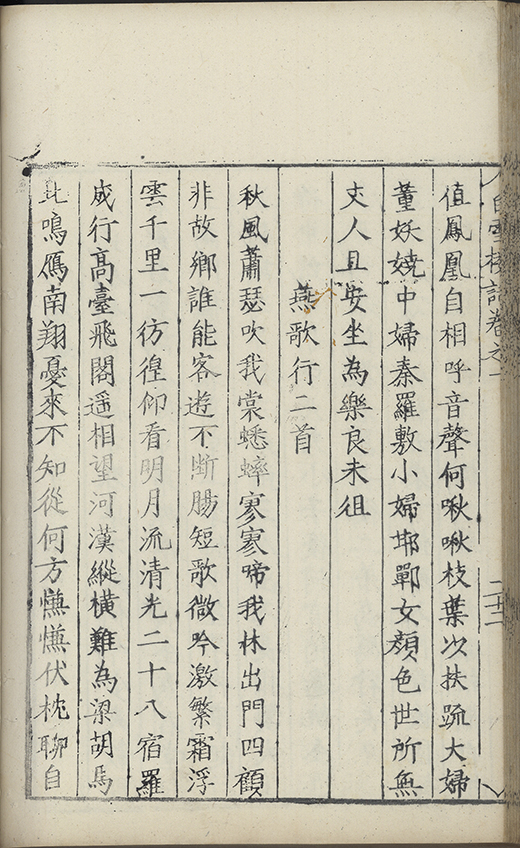 白雪樓詩卷之一
二十二
值鳳凰自相呼音聲何啾啾枝葉次扶疏大婦
董妖嬈中婦秦羅敷小婦邯鄲女顏色世所無
丈人且安坐為樂良未徂
燕歌行二首
秋風蕭瑟吹我裳蟋蟀寥寥啼我林出門四顧
非故鄉誰能客遊不斷腸短歌微吟激繁霜浮
雲千里一彷徨仰看明月流清光二十八宿羅
成行高臺飛閣遥相望河漢縱橫難為梁胡馬
北鳴鴈南翔憂來不知從何方慊慊伏枕聊自